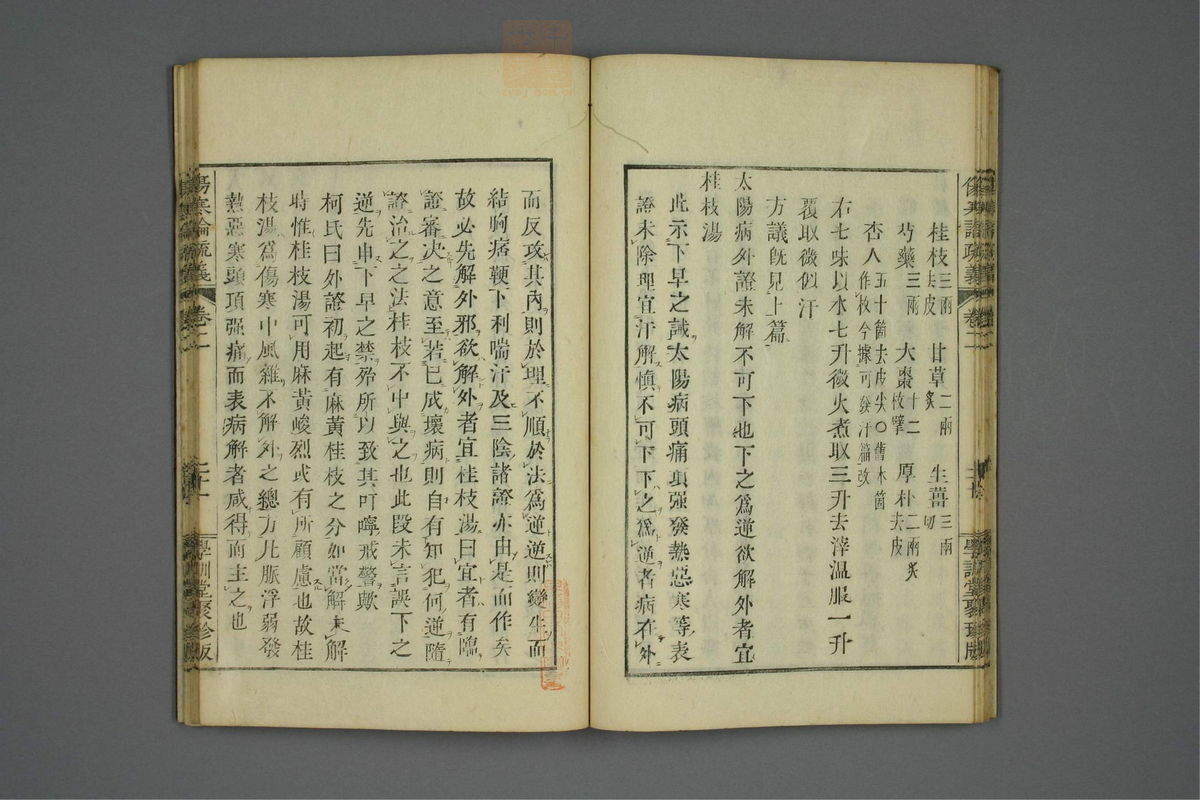 桂枝三兩去皮 甘草二兩炙 生薑三兩切
芍藥三兩 大棗十二枚擘 厚朴二兩炙去皮
杏人五十箇去皮尖○舊本箇作枚今據可發汗篇改
右七味以水七升微火煮取三升去滓溫服一升
覆取微似汗
方議既見上篇
太陽病外證未解不可下也下之爲逆欲解外者宜
桂枝湯
此示下早之誡太陽病頭痛項强發熱惡寒等表
證未除理宜汗解愼不可下下之爲逆者病在外
而反攻其內則於理不順於法爲逆逆則變生而
結胸痞鞕下利喘汗及三陰諸證亦由是而作矣
故必先解外邪欲解外者宜桂枝湯曰宜者有臨
證審決之意至若已成壞病則自有知犯何逆隨
證治之之法桂枝不中與之也此段未言誤下之
逆先申下早之禁殆所以致其叮嚀戒警歟
柯氏曰外證初起有麻黃桂枝之分如當解未解
時惟桂枝湯可用麻黃峻烈或有所顧慮也故桂
枝湯爲傷寒中風雜不解外之總方凡脈浮弱發
熱惡寒頭項强痛而表病解者咸得而主之也
傷寒論疏義 卷二
學訓堂聚珍版